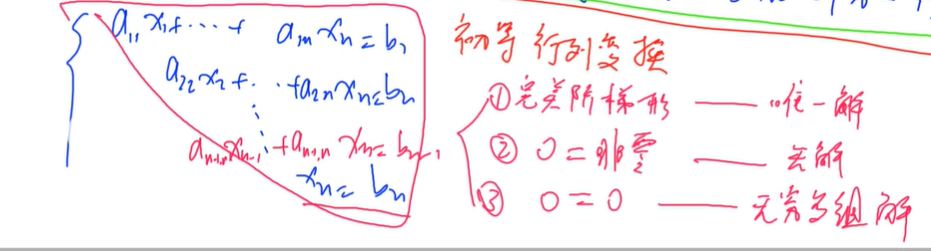 a₁₁x₁+⋯+ a₁ₙxₙ=b₁
a₂₂x₂+⋯+a₂ₙxₙ=bₙ
aₙ₋₁,ₙ₋₁xₙ₋₁+aₙ₋₁,ₙ xₙ=bₙ₋₁
xₙ=bₙ
初等行列变换
①完美阶梯形 —— 唯一解
② 0=非零 —— 无解
③ 0=0 —— 无穷多组解